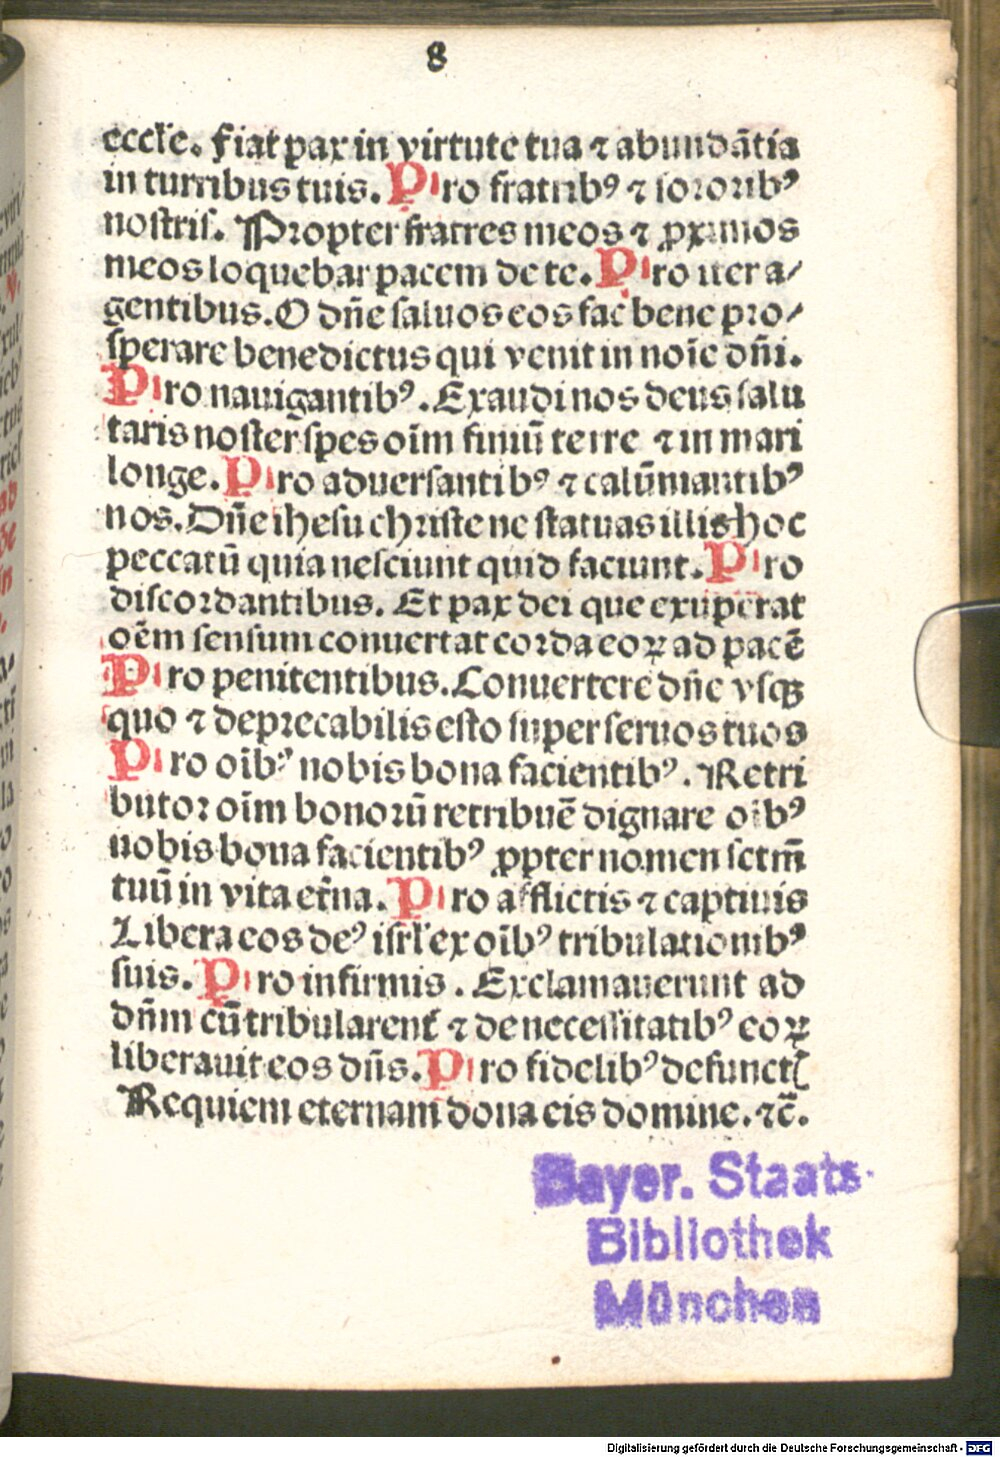 8
eccl'e. Fiat pax in virtute tua ⁊ abundãtia
in turribus tuis. Pro fratribꝰ ⁊ sororibꝰ
nostris. Propter fratres meos ⁊ ꝓximos
meos loquebar pacem de te. Pro iter a/
gentibus. O dñe saluos eos fac bene pro/
sperare benedictus qui venit in noīe dñi.
Pro nauigantibꝰ. Exaudi nos deus salu
taris noster spes oīm finiū terre ⁊ in mari
longe. Pro aduersantibꝰ ⁊ calūniantibꝰ
nos. Dñe ihesu christe ne statuas illis hoc
peccatū quia nesciunt quid faciunt. Pro
discordantibus. Et pax dei que exuperat
oēm sensum conuertat corda eoꝝ ad pacē
Pro penitentibus. Conuertere dñe vsqꝫ
quo ⁊ deprecabilis esto super seruos tuos
Pro oībꝰ nobis bona facientibꝰ. Retri
butor oīm bonorū retribuē dignare oībꝰ
nobis bona facientibꝰ ꝓpter nomen sctm̄
tuū in vita et̄na. Pro afflictis ⁊ captiuis
Libera eos deꝰ isrl' ex oībꝰ tribulationibꝰ
suis. Pro infirmis. Exclamauerunt ad
dñm cū tribularent᷑ ⁊ de necessitatibꝰ eoꝝ
liberauit eos dñs. Pro fidelibꝰ defunctꝭ
Requiem eternam dona eis domine. ⁊c̄.
Bayer. Staats-
Bibliothek
München
Digitalisierung gefördert durch die Deutsche Forschungsgemeinschaft - DFG